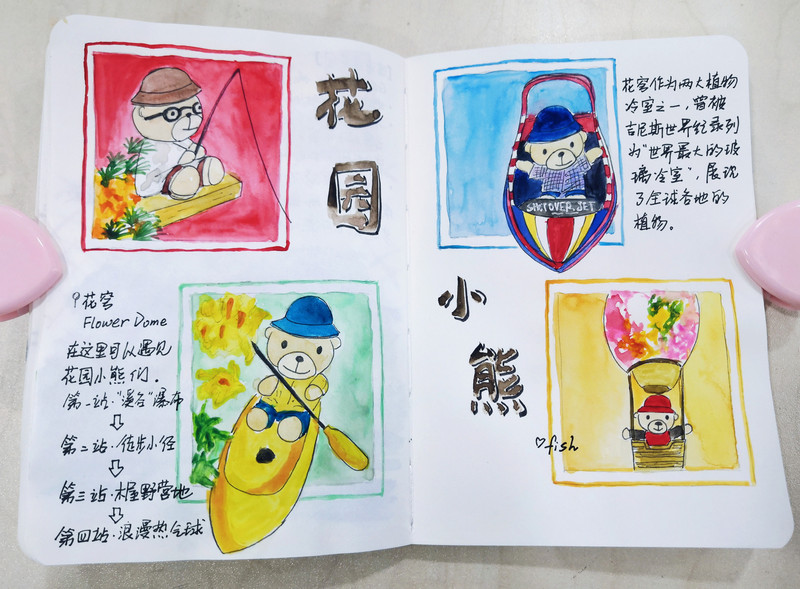 花
园
花穹
Flower Dome
在这里可以遇见
花园小熊们。
第一站·"溪谷"瀑布
第二站·徒步小径
第三站·木屋野营地
第四站·浪漫热气球
花穹作为两大植物
冷室之一，曾被
吉尼斯世界纪录列
为"世界最大的玻
璃冷室"，展现
了全球各地的
植物。
小
熊
fish